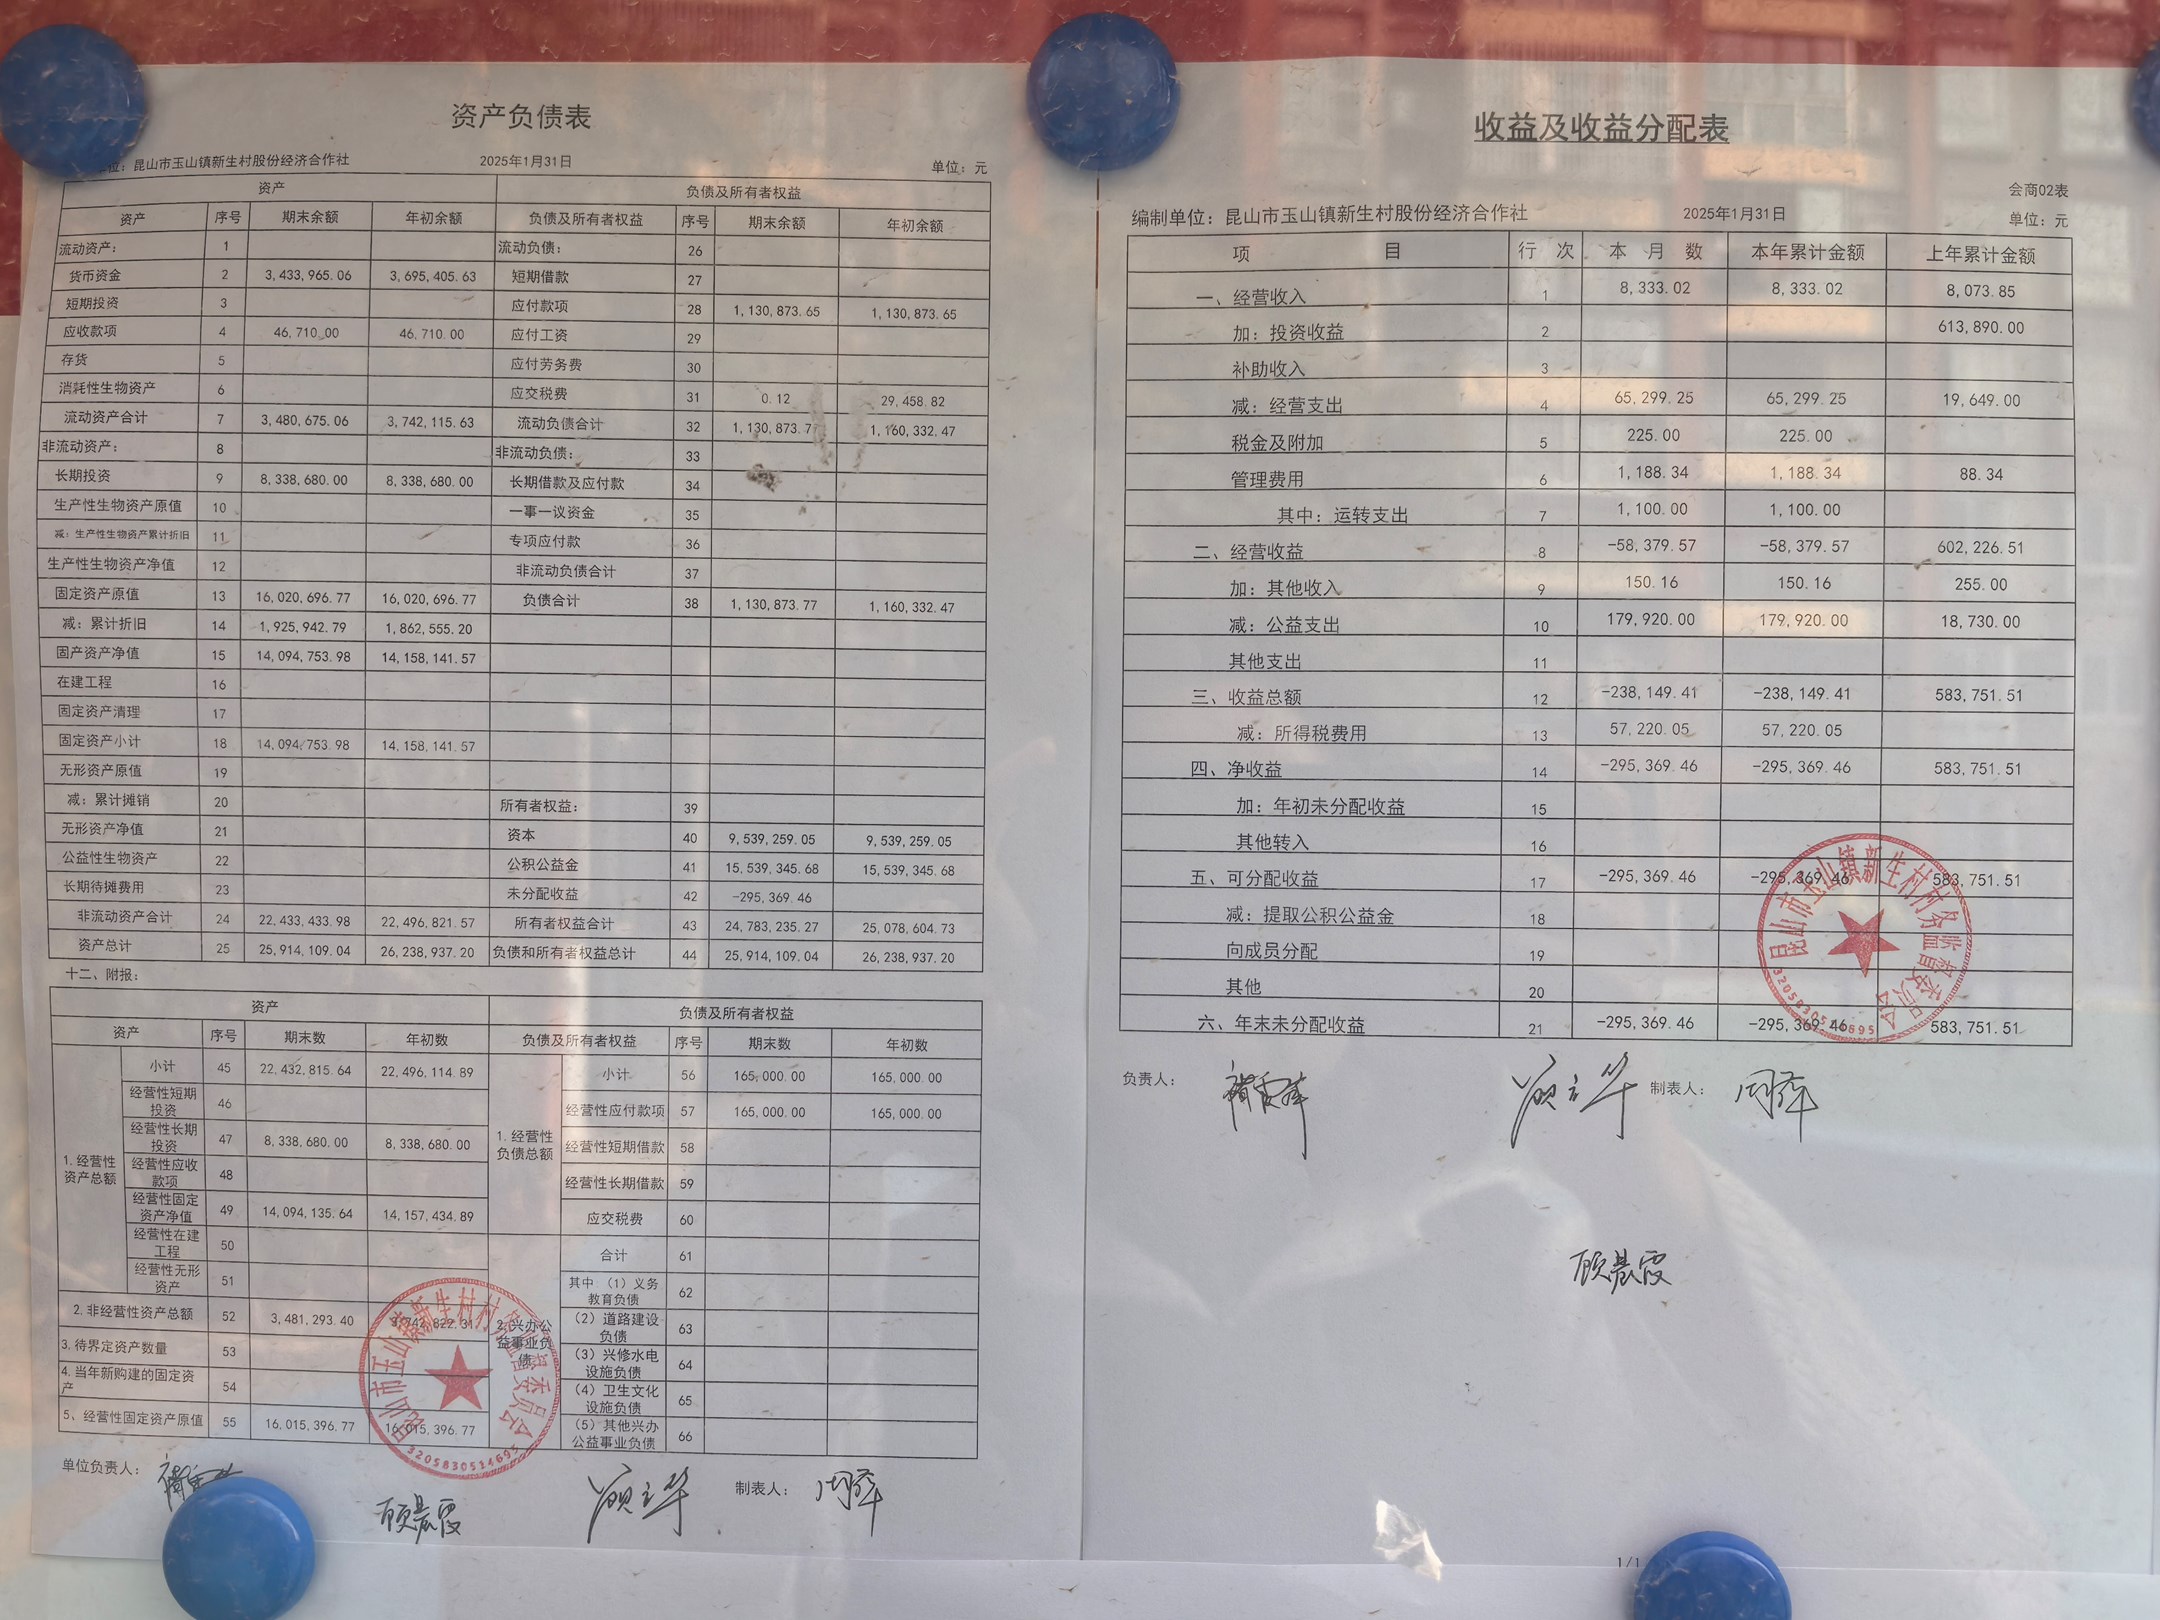 资产负债表
位：昆山市玉山镇新生村股份经济合作社 2025年1月31日 单位：元
资产 负债及所有者权益
资产 序号 期末余额 年初余额 负债及所有者权益 序号 期末余额 年初余额
流动资产： 1 流动负债： 26
货币资金 2 3,433,965.06 3,695,405.63 短期借款 27
短期投资 3 应付款项 28 1,130,873.65 1,130,873.65
应收款项 4 46,710.00 46,710.00 应付工资 29
存货 5 应付劳务费 30
消耗性生物资产 6 应交税费 31 0.12 29,458.82
流动资产合计 7 3,480,675.06 3,742,115.63 流动负债合计 32 1,130,873.77 1,160,332.47
非流动资产： 8 非流动负债： 33
长期投资 9 8,338,680.00 8,338,680.00 长期借款及应付款 34
生产性生物资产原值 10 一事一议资金 35
减：生产性生物资产累计折旧 11 专项应付款 36
生产性生物资产净值 12 非流动负债合计 37
固定资产原值 13 16,020,696.77 16,020,696.77 负债合计 38 1,130,873.77 1,160,332.47
减：累计折旧 14 1,925,942.79 1,862,555.20
固产资产净值 15 14,094,753.98 14,158,141.57
在建工程 16
固定资产清理 17
固定资产小计 18 14,094,753.98 14,158,141.57
无形资产原值 19
减：累计摊销 20 所有者权益： 39
无形资产净值 21 资本 40 9,539,259.05 9,539,259.05
公益性生物资产 22 公积公益金 41 15,539,345.68 15,539,345.68
长期待摊费用 23 未分配收益 42 -295,369.46
非流动资产合计 24 22,433,433.98 22,496,821.57 所有者权益合计 43 24,783,235.27 25,078,604.73
资产总计 25 25,914,109.04 26,238,937.20 负债和所有者权益总计 44 25,914,109.04 26,238,937.20
十二、附报：
资产 负债及所有者权益
资产 序号 期末数 年初数 负债及所有者权益 序号 期末数 年初数
1.经营性资产总额 小计 45 22,432,815.64 22,496,114.89 1.经营性负债总额 小计 56 165,000.00 165,000.00
经营性短期投资 46 经营性应付款项 57 165,000.00 165,000.00
经营性长期投资 47 8,338,680.00 8,338,680.00 经营性短期借款 58
经营性应收款项 48 经营性长期借款 59
经营性固定资产净值 49 14,094,135.64 14,157,434.89 应交税费 60
经营性在建工程 50 2.兴办公益事业负债 合计 61
经营性无形资产 51 其中（1）义务教育负债 62
2.非经营性资产总额 52 3,481,293.40 3,742,822.31 （2）道路建设负债 63
3.待界定资产数量 53 （3）兴修水电设施负债 64
4.当年新购建的固定资产 54 （4）卫生文化设施负债 65
5、经营性固定资产原值 55 16,015,396.77 16,015,396.77 （5）其他兴办公益事业负债 66
昆山市玉山镇新生村村务监督委员会
单位负责人： 顾晨霞 顾立华 制表人： 周萍
收益及收益分配表
会商02表
编制单位：昆山市玉山镇新生村股份经济合作社 2025年1月31日 单位：元
项 目 行 次 本 月 数 本年累计金额 上年累计金额
一、经营收入 1 8,333.02 8,333.02 8,073.85
加：投资收益 2 613,890.00
补助收入 3
减：经营支出 4 65,299.25 65,299.25 19,649.00
税金及附加 5 225.00 225.00
管理费用 6 1,188.34 1,188.34 88.34
其中：运转支出 7 1,100.00 1,100.00
二、经营收益 8 -58,379.57 -58,379.57 602,226.51
加：其他收入 9 150.16 150.16 255.00
减：公益支出 10 179,920.00 179,920.00 18,730.00
其他支出 11
三、收益总额 12 -238,149.41 -238,149.41 583,751.51
减：所得税费用 13 57,220.05 57,220.05
四、净收益 14 -295,369.46 -295,369.46 583,751.51
加：年初未分配收益 15
其他转入 16
五、可分配收益 17 -295,369.46 -295,369.46 583,751.51
减：提取公积公益金 18
向成员分配 19
其他 20
六、年末未分配收益 21 -295,369.46 -295,369.46 583,751.51
昆山市玉山镇新生村村务监督委员会
负责人： 顾立华 制表人： 周萍
顾晨霞
1/1